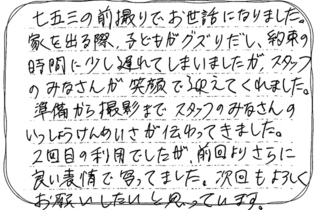 七五三の前撮りで、お世話になりました。
家を出る際、子どもがグズりだし、約束の
時間に少し遅れてしまいましたが、スタッフ
のみなさんが笑顔で迎えてくれました。
準備から撮影までスタッフのみなさんの
いっしょうけんめいさが伝わってきました。
2回目の利用でしたが、前回よりさらに
良い表情で写ってました。次回もよろしく
お願いしたいと思っています。